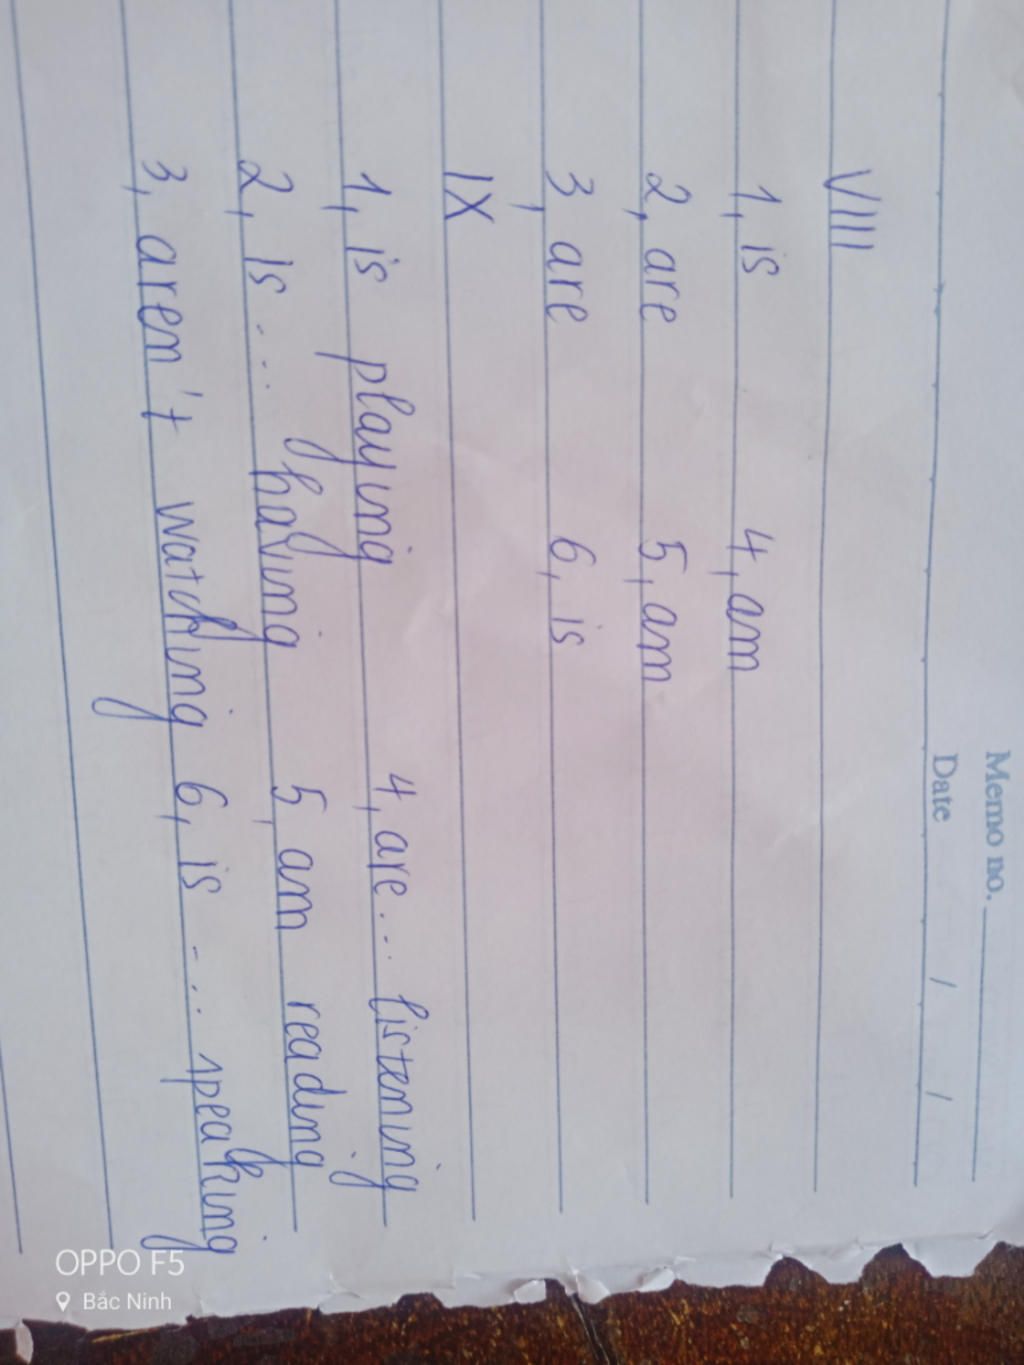 Memo no.
Date / /
VIII
1, is 4, am
2, are 5, am
3, are 6, is
IX
1, is playing 4, are... listening
2, is.... having 5, am reading
3, aren't watching 6, is .... speaking
OPPO F5
Bắc Ninh